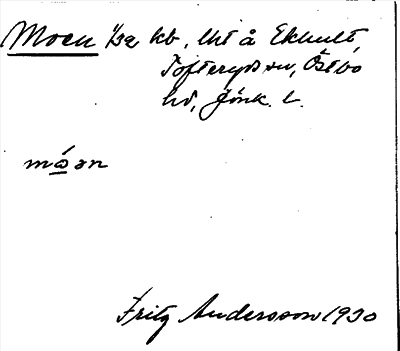 Moen 1/32 kb, lht å Ekhult
Tofteryds sn, Östbo
hd, Jönk. l.
móɘn
Fritz Andersson 1930